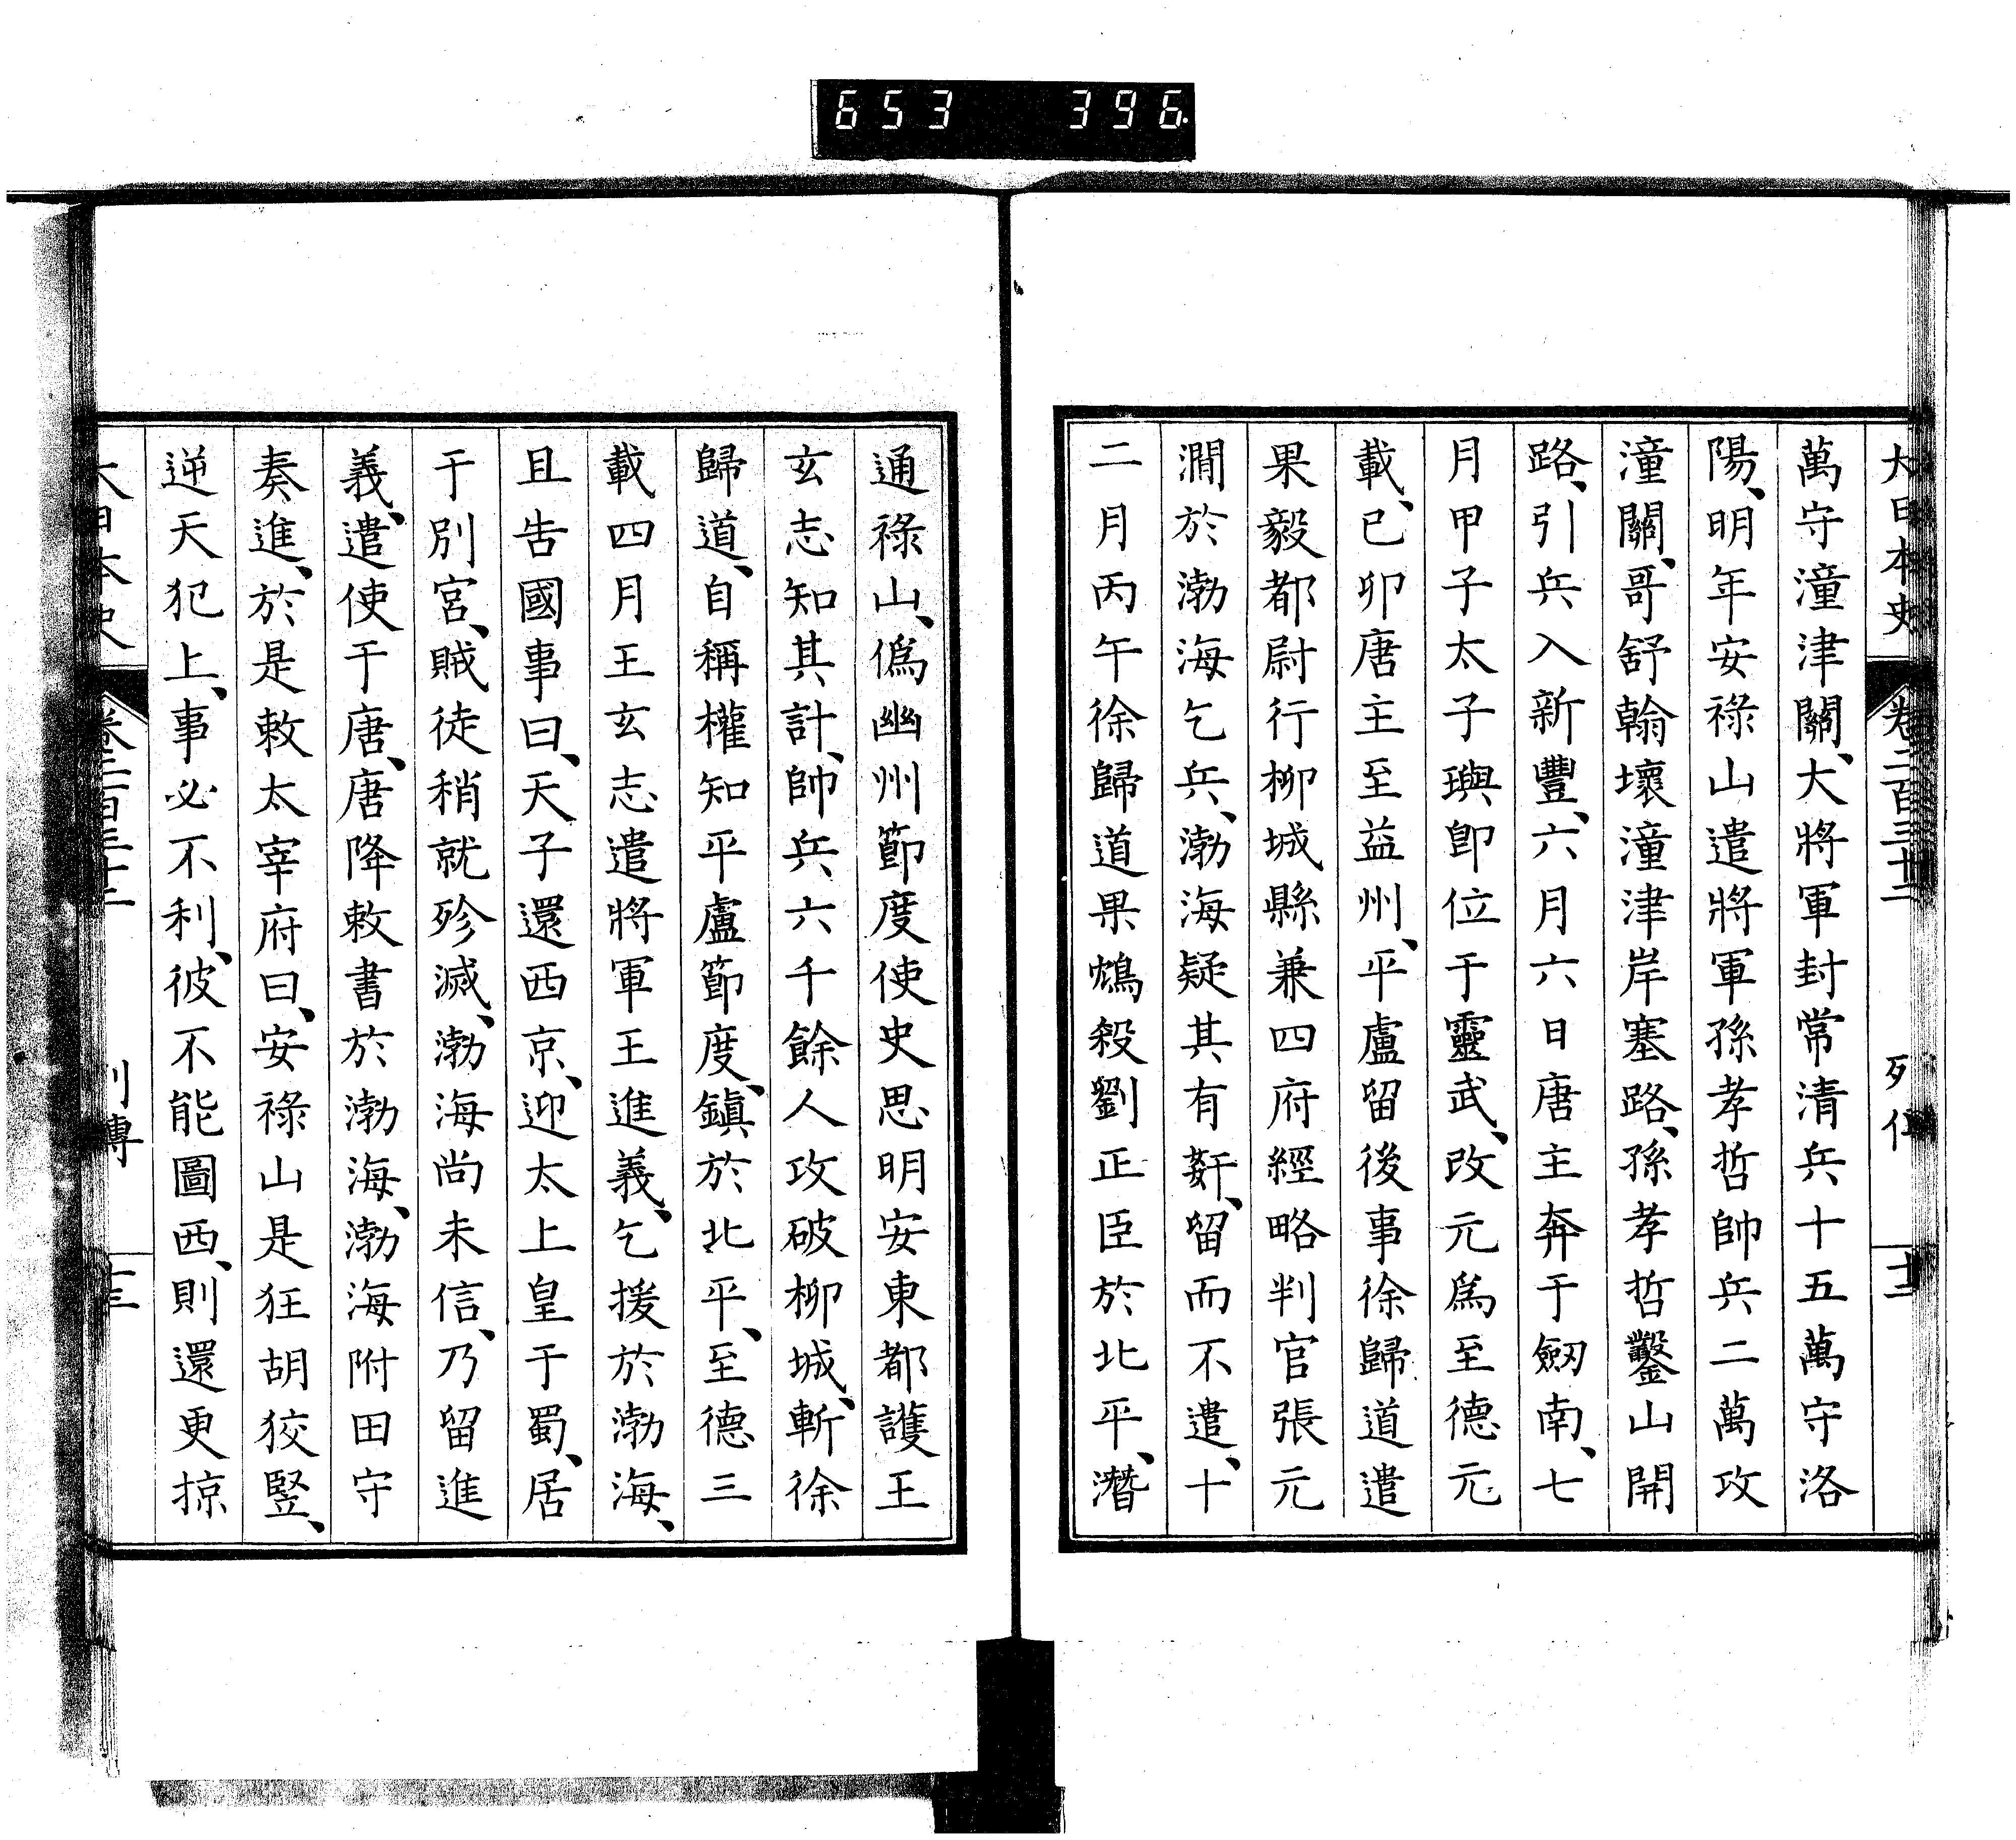 653 396
大日本史 卷二百三十二 列傳 十二
萬守潼津關、大將軍封常清兵十五萬守洛
陽、明年安祿山遣將軍孫孝哲帥兵二萬攻
潼關、哥舒翰壞潼津岸塞路、孫孝哲鑿山開
路、引兵入新豐、六月六日唐主奔于劒南、七
月甲子太子璵卽位于靈武、改元爲至德元
載、已卯唐主至益州、平盧留後事徐歸道遣
果毅都尉行柳城縣兼四府經略判官張元
澗於渤海乞兵、渤海疑其有姧、留而不遣、十
二月丙午徐歸道果鴆殺劉正臣於北平、潛
通祿山、僞幽州節度使史思明安東都護王
玄志知其計、帥兵六千餘人攻破柳城、斬徐
歸道、自稱權知平盧節度、鎭於北平、至德三
載四月王玄志遣將軍王進義、乞援於渤海、
且告國事曰、天子還西京、迎太上皇于蜀、居
于別宮、賊徒稍就殄滅、渤海尚未信、乃留進
義、遣使于唐、唐降敕書於渤海、渤海附田守
奏進、於是敕太宰府曰、安祿山是狂胡狡竪、
逆天犯上、事必不利、彼不能圖西、則還更掠
大日本史 卷二百三十二 列傳 十三